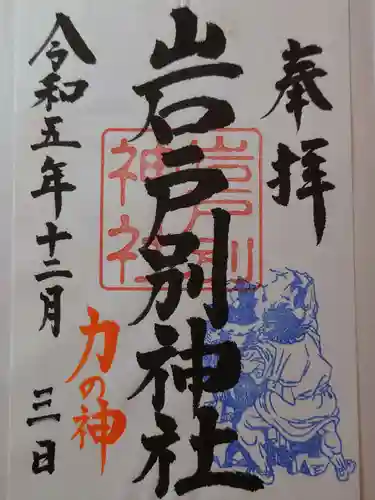 奉拝
岩戸別神社
岩戸別
神社
力の神
令和五年十二月三日